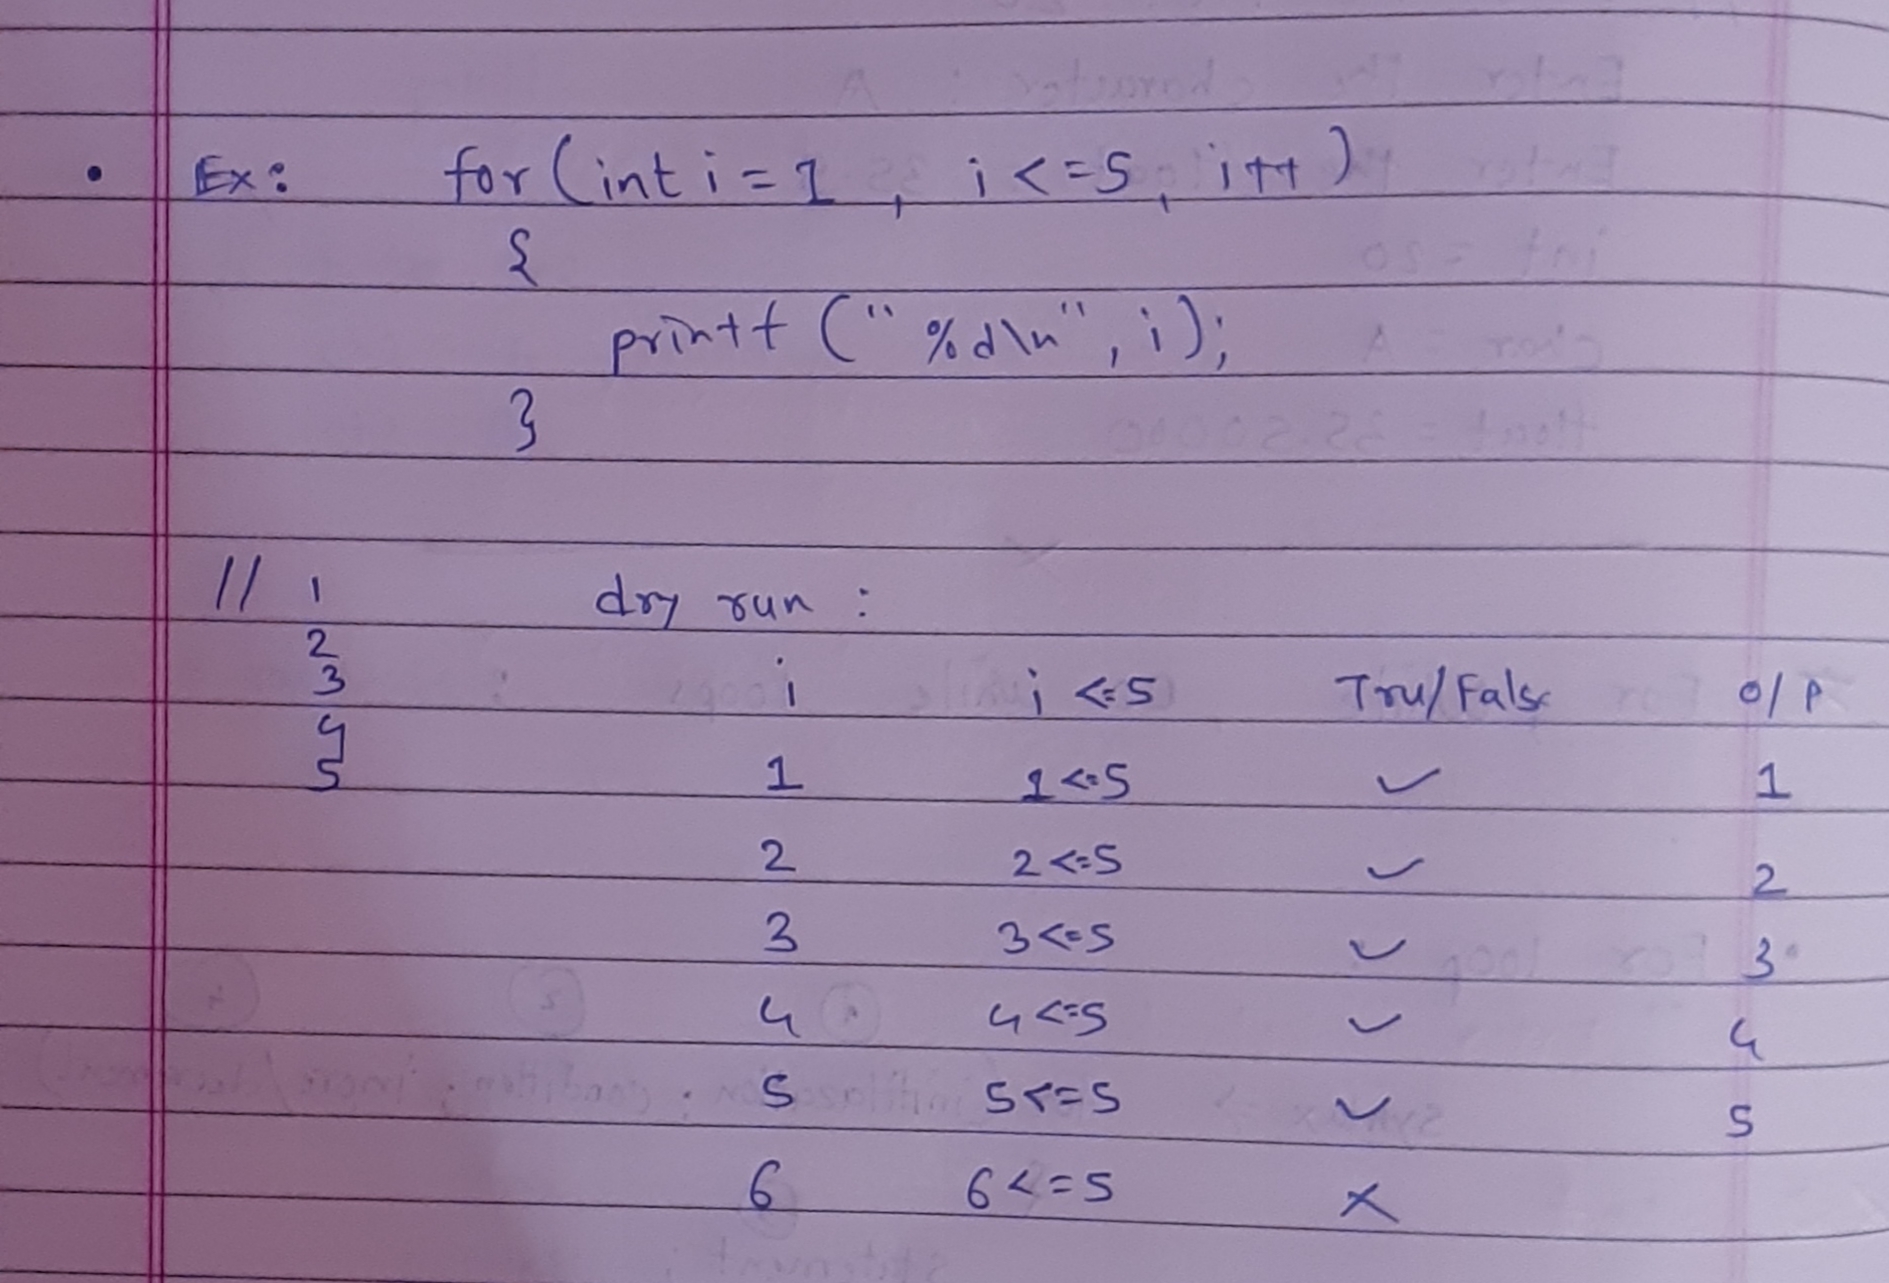 • Ex: for (int i = 1, i <= 5, i++)
{
printf ("%d\n", i);
}
// 1 dry run :
2
3 i i <=5 Tru/False o/p
4
5 1 1<=5 ✓ 1
2 2<=5 ✓ 2
3 3<=5 ✓ 3
4 4<=5 ✓ 4
5 5<=5 ✓ 5
6 6<=5 ×